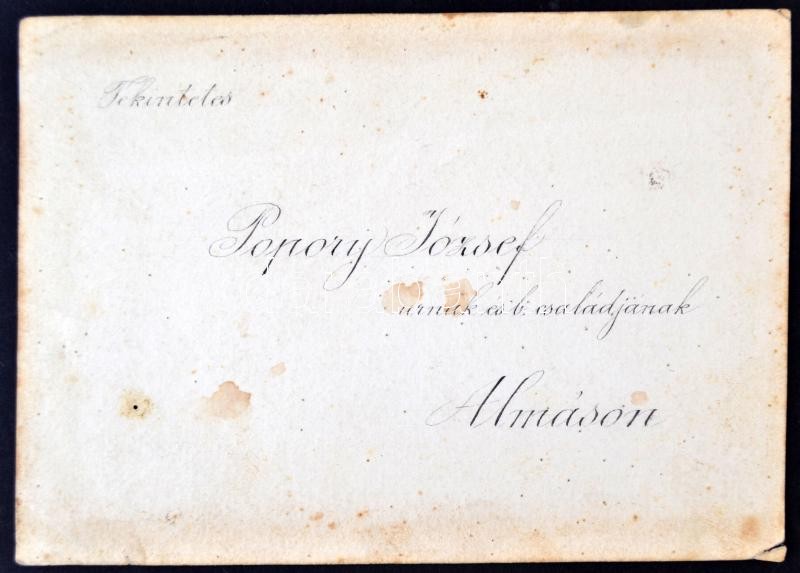 Tekintetes
Popory József
urnak és b. családjának
Almáson